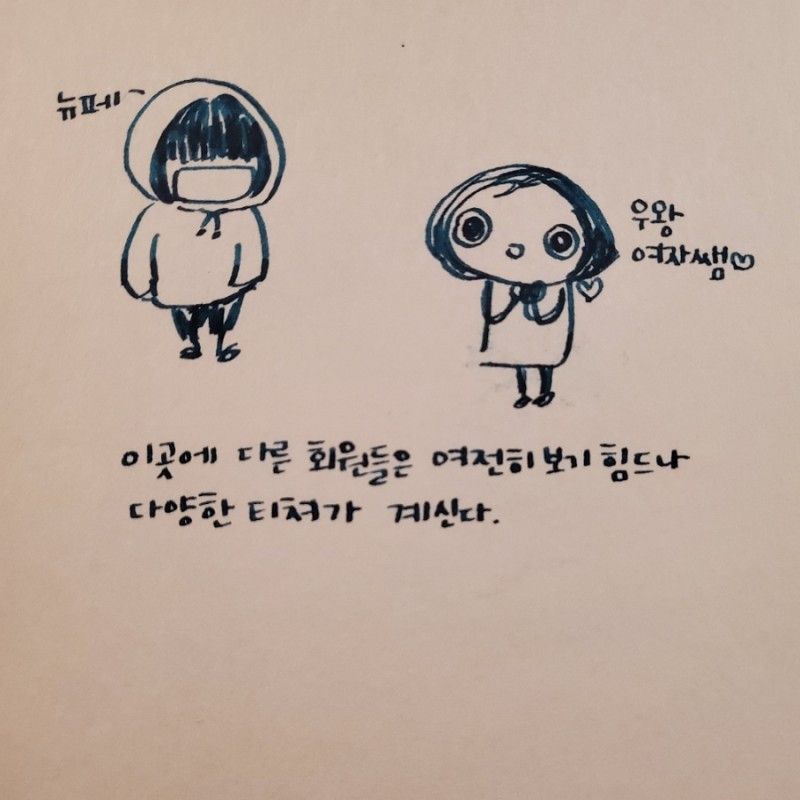 뉴페~
우왕
여자쌤♡
이곳에 다른 회원들은 여전히 보기 힘드나
다양한 티쳐가 계신다.